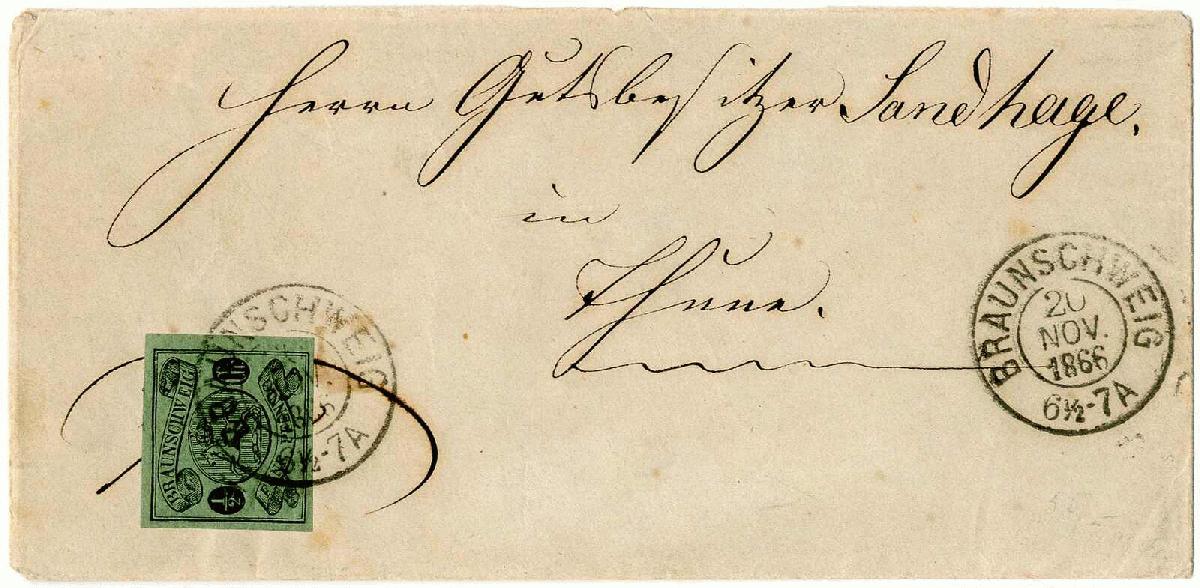 Herrn Gutsbesitzer Sandhage.
in
Thune.
BRAUNSCHWEIG
20
NOV.
1866
6½-7A
BRAUNSCHWEIG
6½-7A
BRAUNSCHWEIG
½